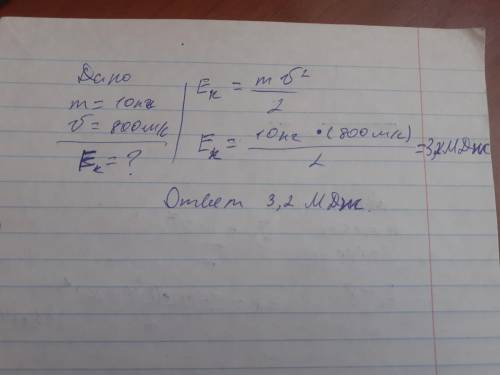 Дано
m = 10кг
v = 800м/с
Eк = ?
Eк = mv²/2
Eк = 10кг • (800м/с)/2 = 3,2МДж
Ответ 3,2 МДж.